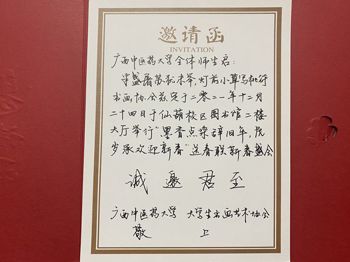 邀请函
INVITATION
广西中医药大学全体师生启：
华盛
书画协会定于二零二一年十二月
二十四日于仙葫校区图书馆二楼
大厅举行“墨香点染辞旧年，
岁承欢迎新春”送春联新春盛会
诚邀君至
广西中医药大学 大学生书画艺术协会
敬上